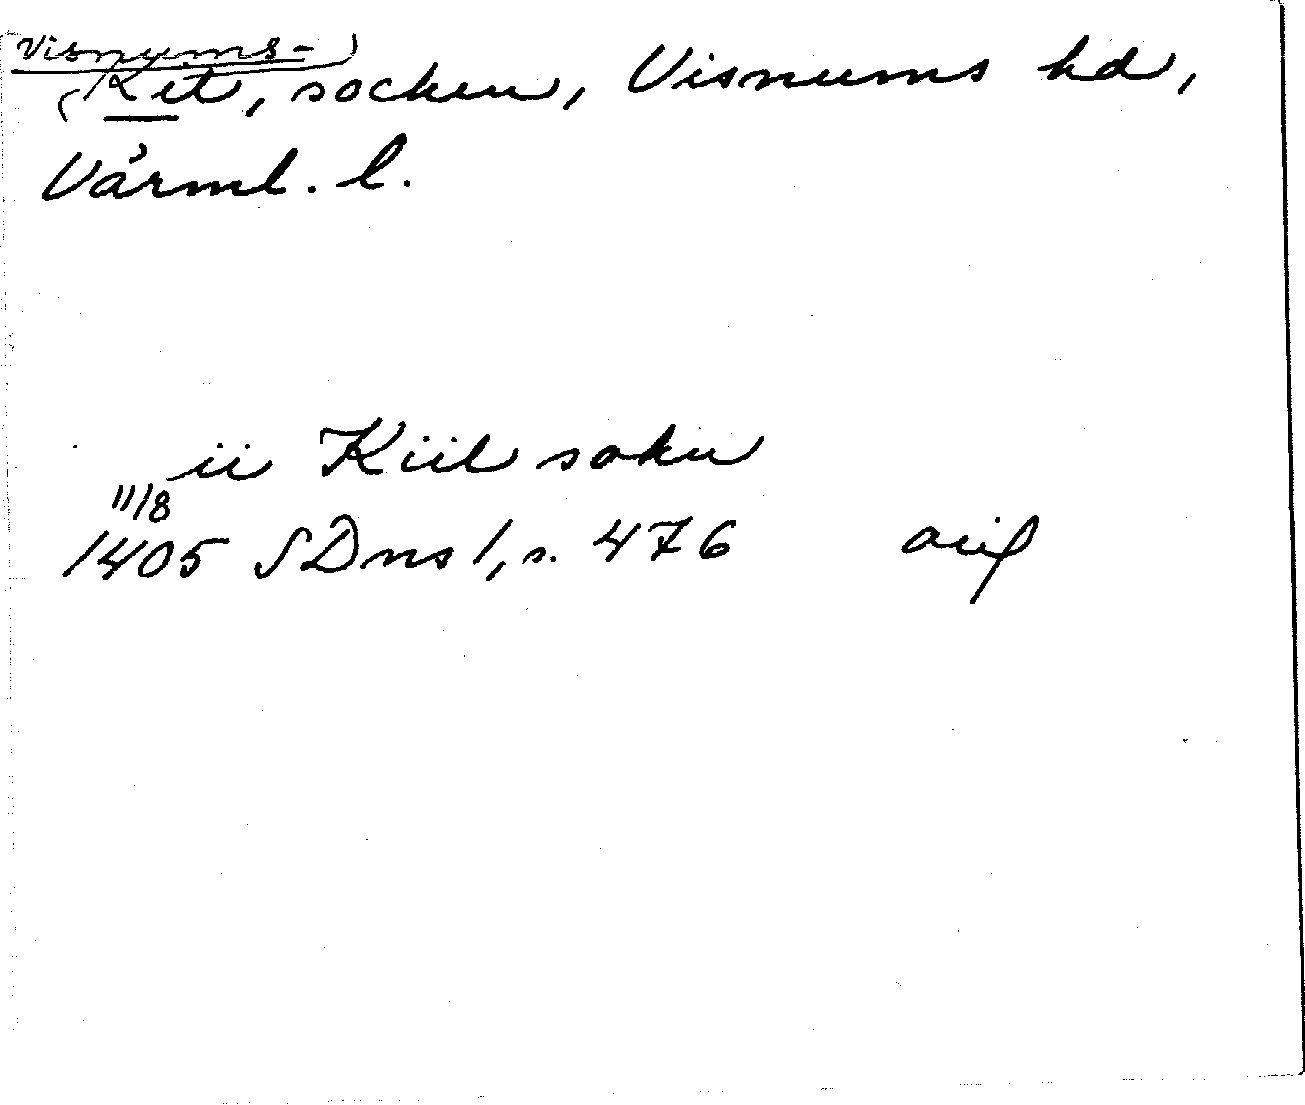 Visnums-
Kil, socken, Visnums hd,
Värml. l.
ii Kiil sokn
11/8
1405 SDns 1, s. 476 avs